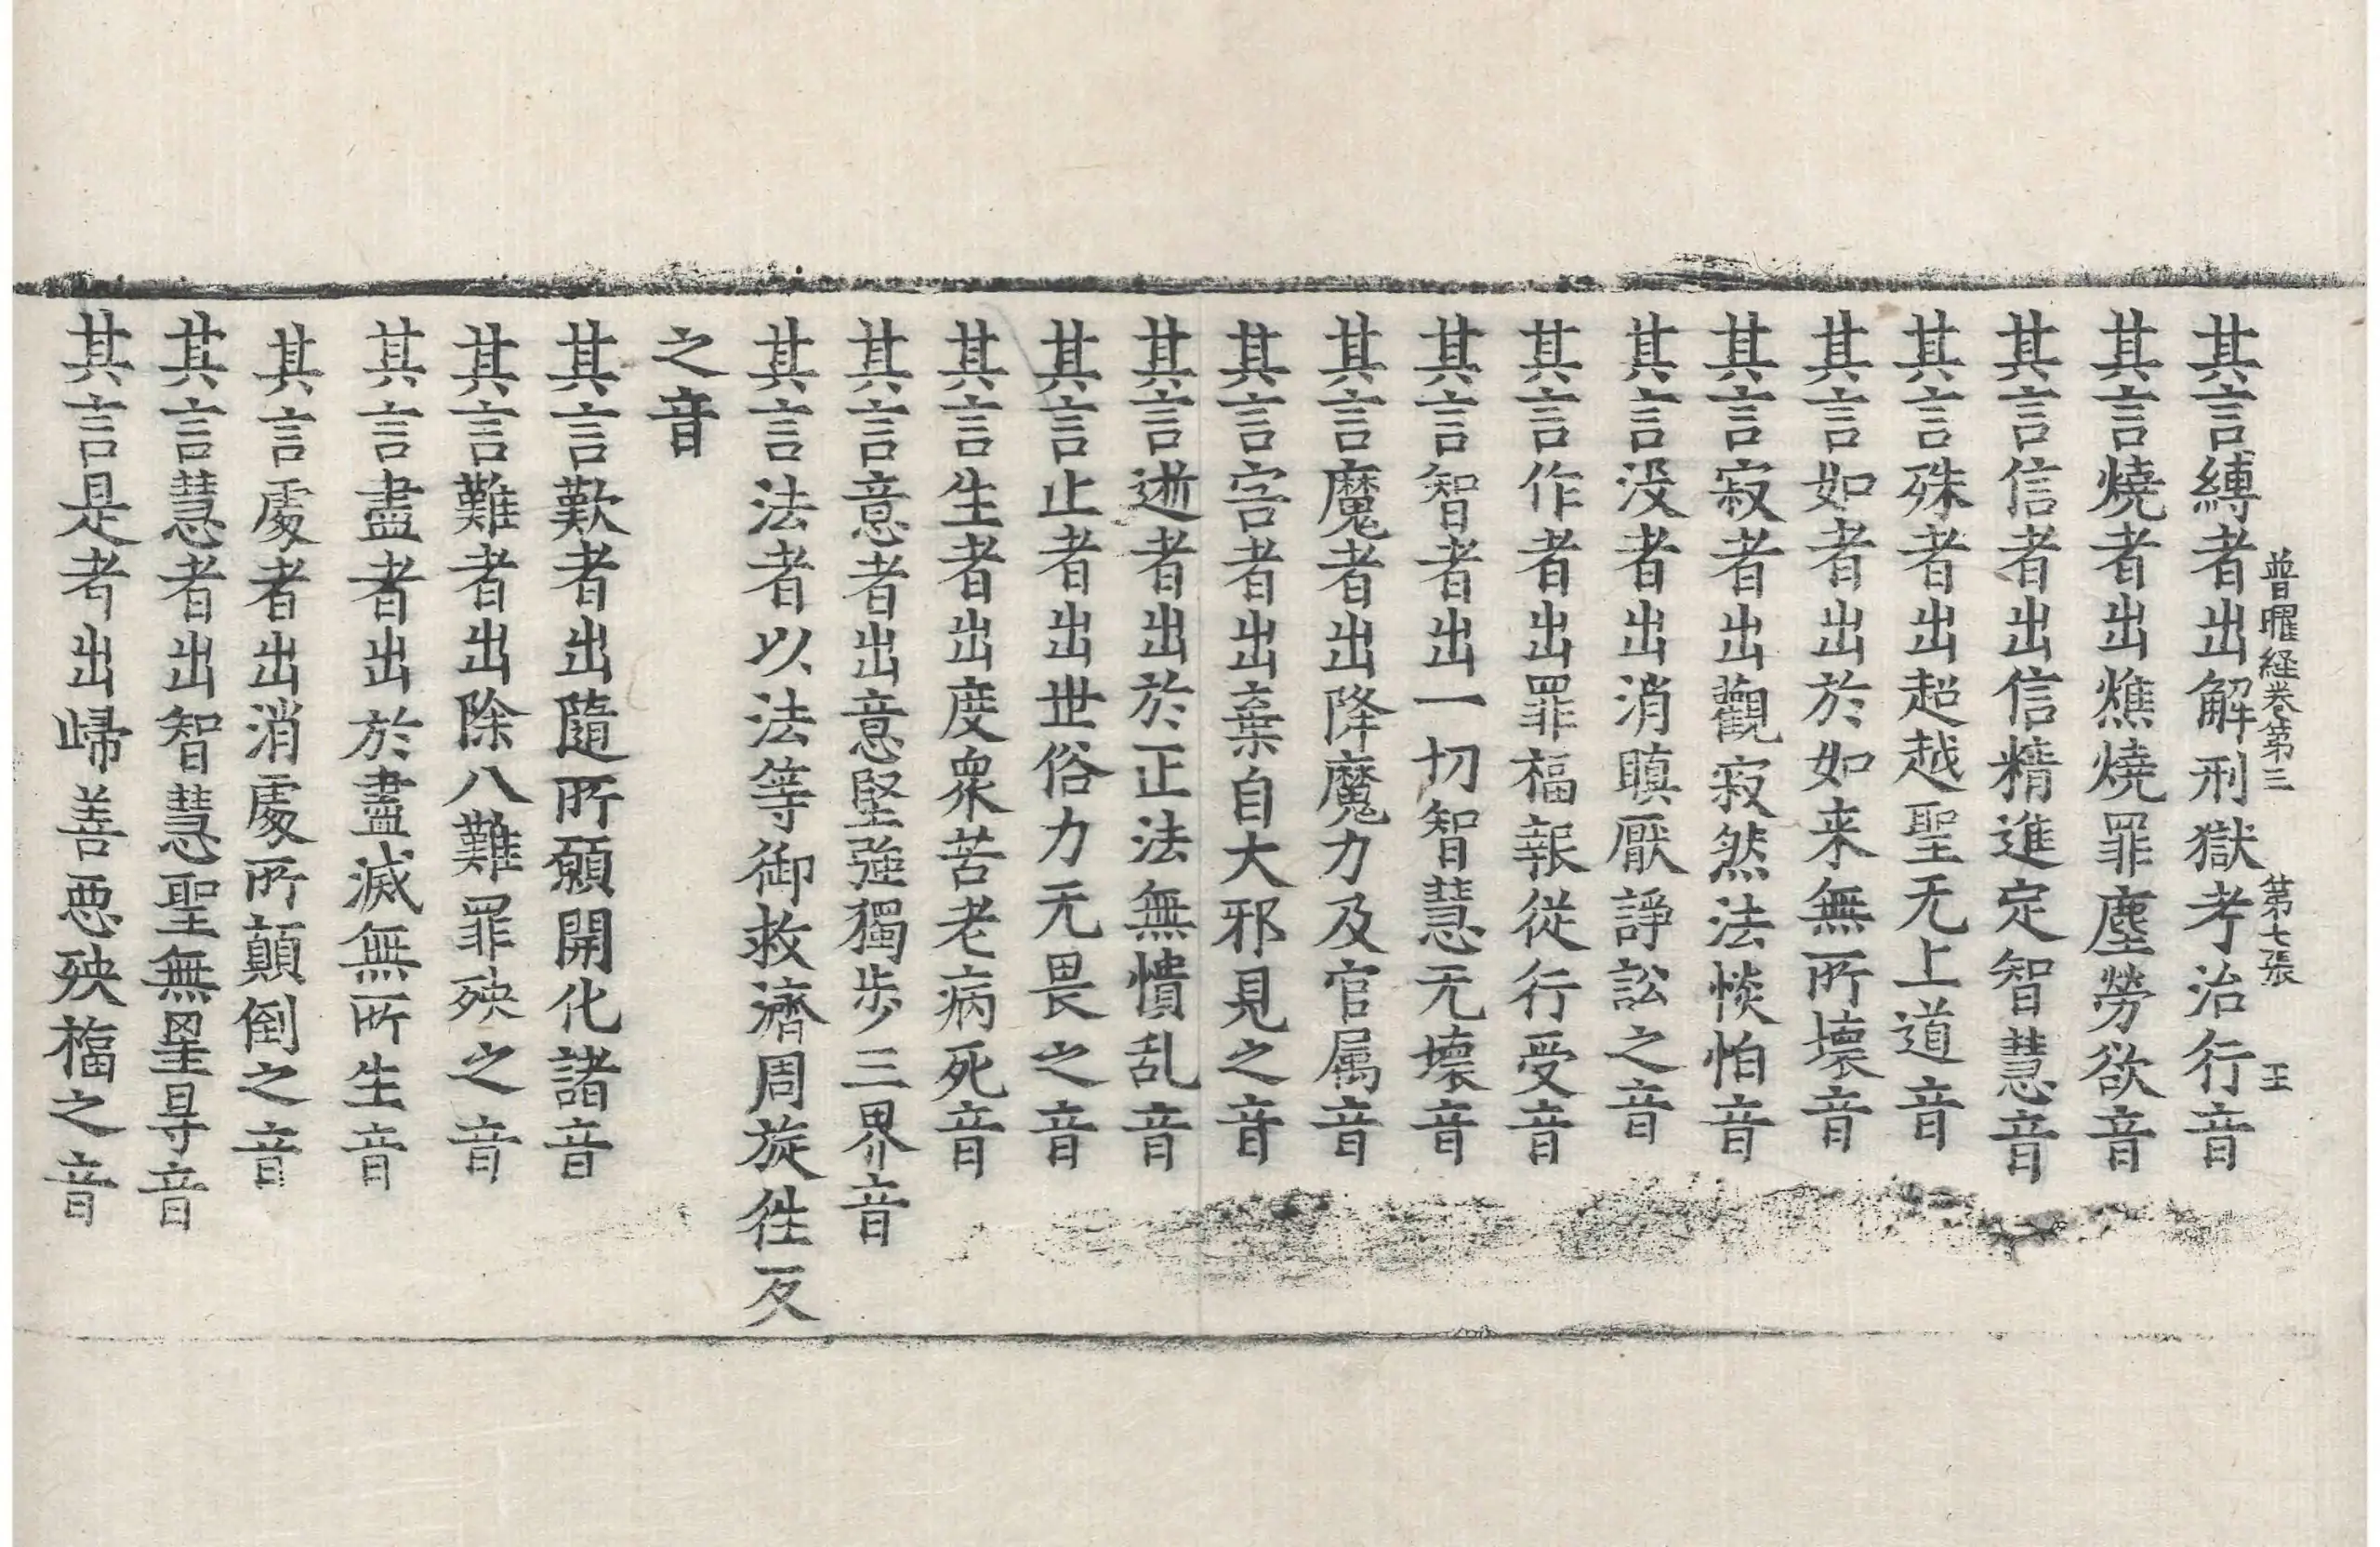 普曜経卷第三 第七張 王
其言縛者出解刑獄考治行音
其言燒者出燋燒罪塵勞欲音
其言信者出信精進定智慧音
其言殊者出超越聖无上道音
其言如者出於如来無所壞音
其言寂者出觀寂然法惔怕音
其言没者出消瞋厭諍訟之音
其言作者出罪福報從行受音
其言智者出一切智慧无壞音
其言魔者出降魔力及官属音
其言害者出棄自大邪見之音
其言逝者出於正法無憒乱音
其言止者出世俗力无畏之音
其言生者出度衆苦老病死音
其言意者出意堅強獨步三界音
其言法者以法等御救濟周旋徃反
之音
其言歎者出隨所願開化諸音
其言難者出除八難罪殃之音
其言盡者出於盡滅無所生音
其言處者出消處所顛倒之音
其言慧者出智慧聖無罣㝵音
其言是者出歸善悪殃福之音